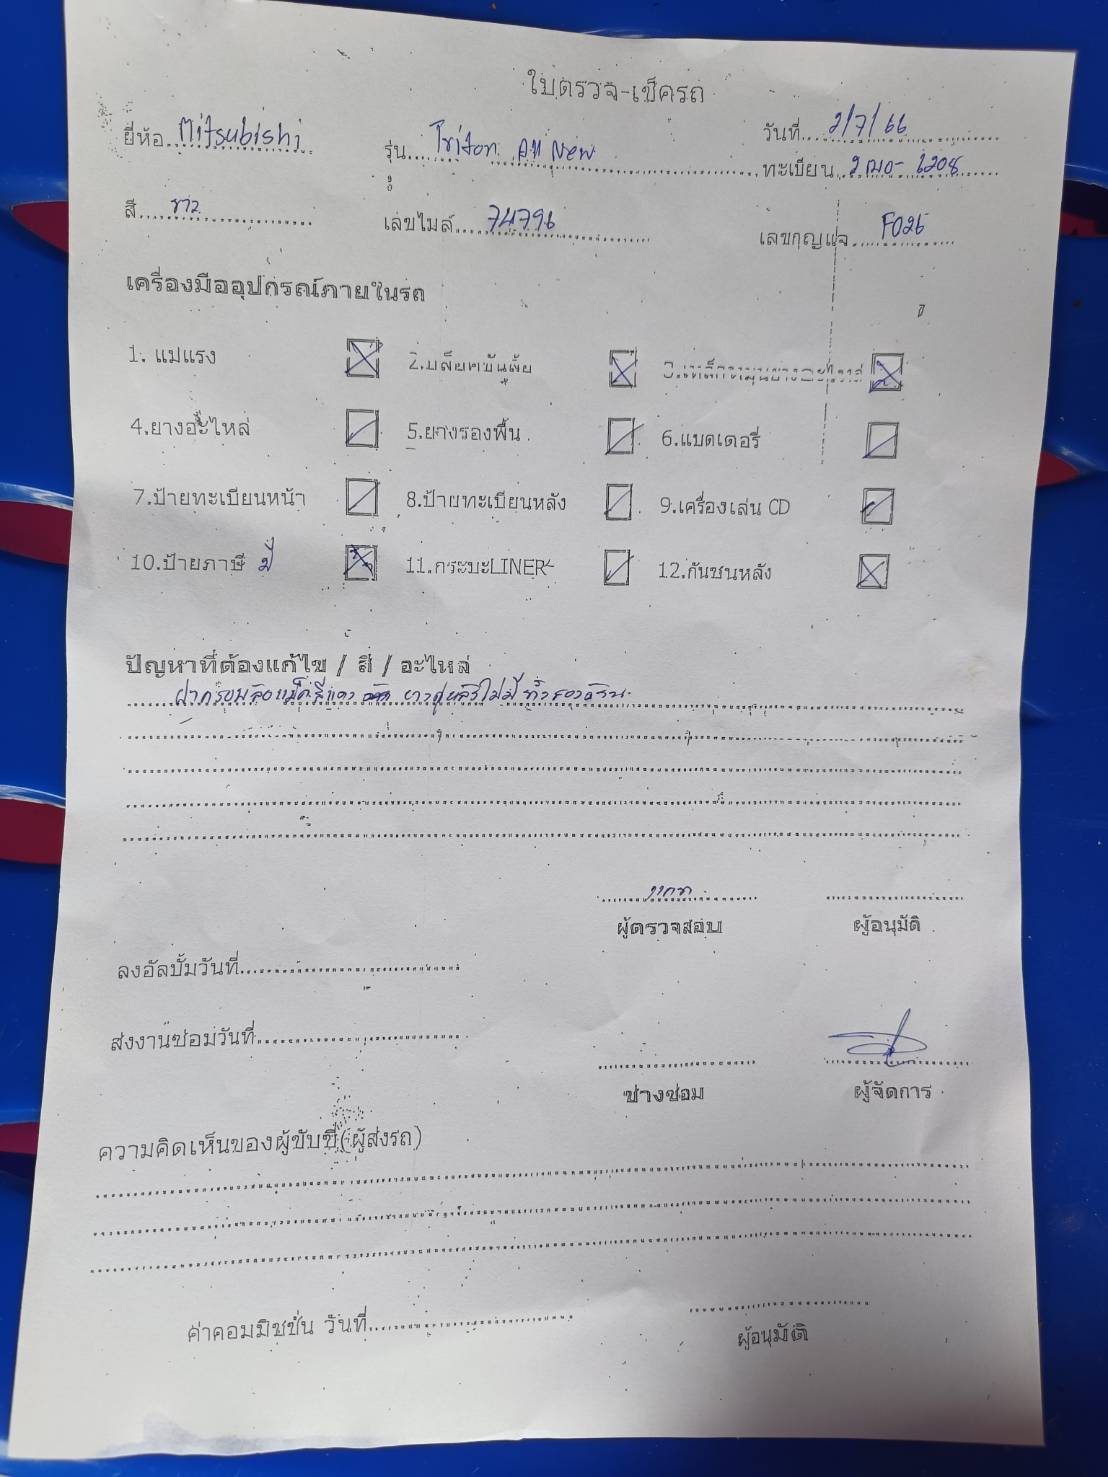 ใบตรวจ-เช็ครถ
ยี่ห้อ Mitsubishi รุ่น Triton All New วันที่ 2/7/66
ทะเบียน 2ฒO- 1208
สี ขาว เลขไมล์ 74796 เลขกุญแจ F026
เครื่องมืออุปกรณ์ภายในรถ
1. แม่แรง 2.บล็อคขันล้อ
4.ยางอะไหล่ 5.ยางรองพื้น 6.แบตเตอรี่
7.ป้ายทะเบียนหน้า 8.ป้ายทะเบียนหลัง 9.เครื่องเล่น CD
10.ป้ายภาษี มี 11.กระบะLINER 12.กันชนหลัง
ปัญหาที่ต้องแก้ไข / สี / อะไหล่
ฝาครอบล้อแม็ค ไม่มี ทั้งสอง
ผู้ตรวจสอบ ผู้อนุมัติ
ลงอัลบั้มวันที่
ส่งงานซ่อมวันที่
ช่างซ่อม ผู้จัดการ
ความคิดเห็นของผู้ขับขี่(ผู้ส่งรถ)
ค่าคอมมิชชั่น วันที่
ผู้อนุมัติ